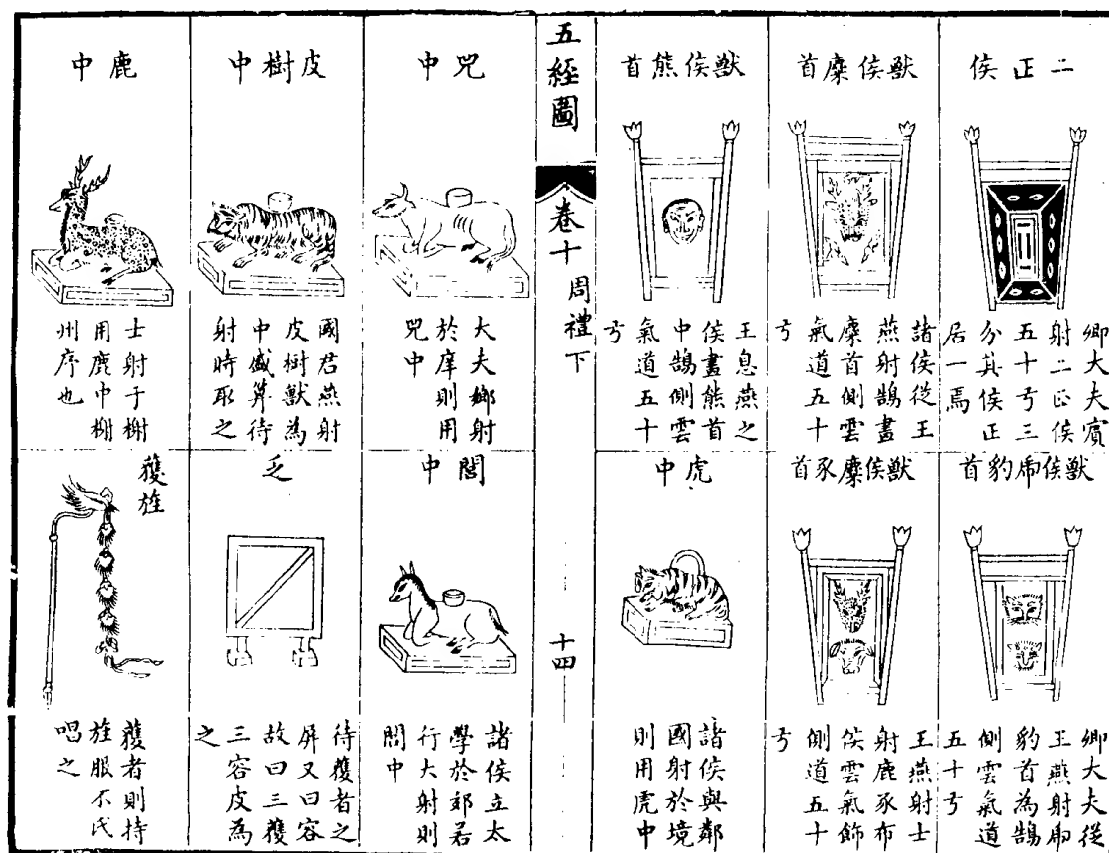 二正侯
卿大夫賓
射二正侯
五十弓三
分其侯正
居一焉
獸侯麋首
諸侯從王
燕射鵠畫
麋首側雲
氣道五十
弓
獸侯熊首
王息燕之
侯畫熊首
中鵠側雲
氣道五十
弓
獸侯虎豹首
卿大夫從
王燕射虎
豹首為鵠
側雲氣道
五十弓
獸侯麋豕首
王燕射士
射鹿豕布
侯雲氣飾
側道五十
弓
虎中
諸侯與鄰
國射於境
則用虎中
五經圖
卷十
周禮下
十四
兕中
大夫鄉射
於庠則用
兕中
皮樹中
國君燕射
皮樹獸為
中盛筭待
射時取之
鹿中
士射于榭
用鹿中榭
州序也
閭中
諸侯立太
學於郊若
行大射則
閭中
乏
待獲者之
屏又曰容
故曰三獲
三容皮為
之
獲旌
獲者則持
旌服不氏
唱之